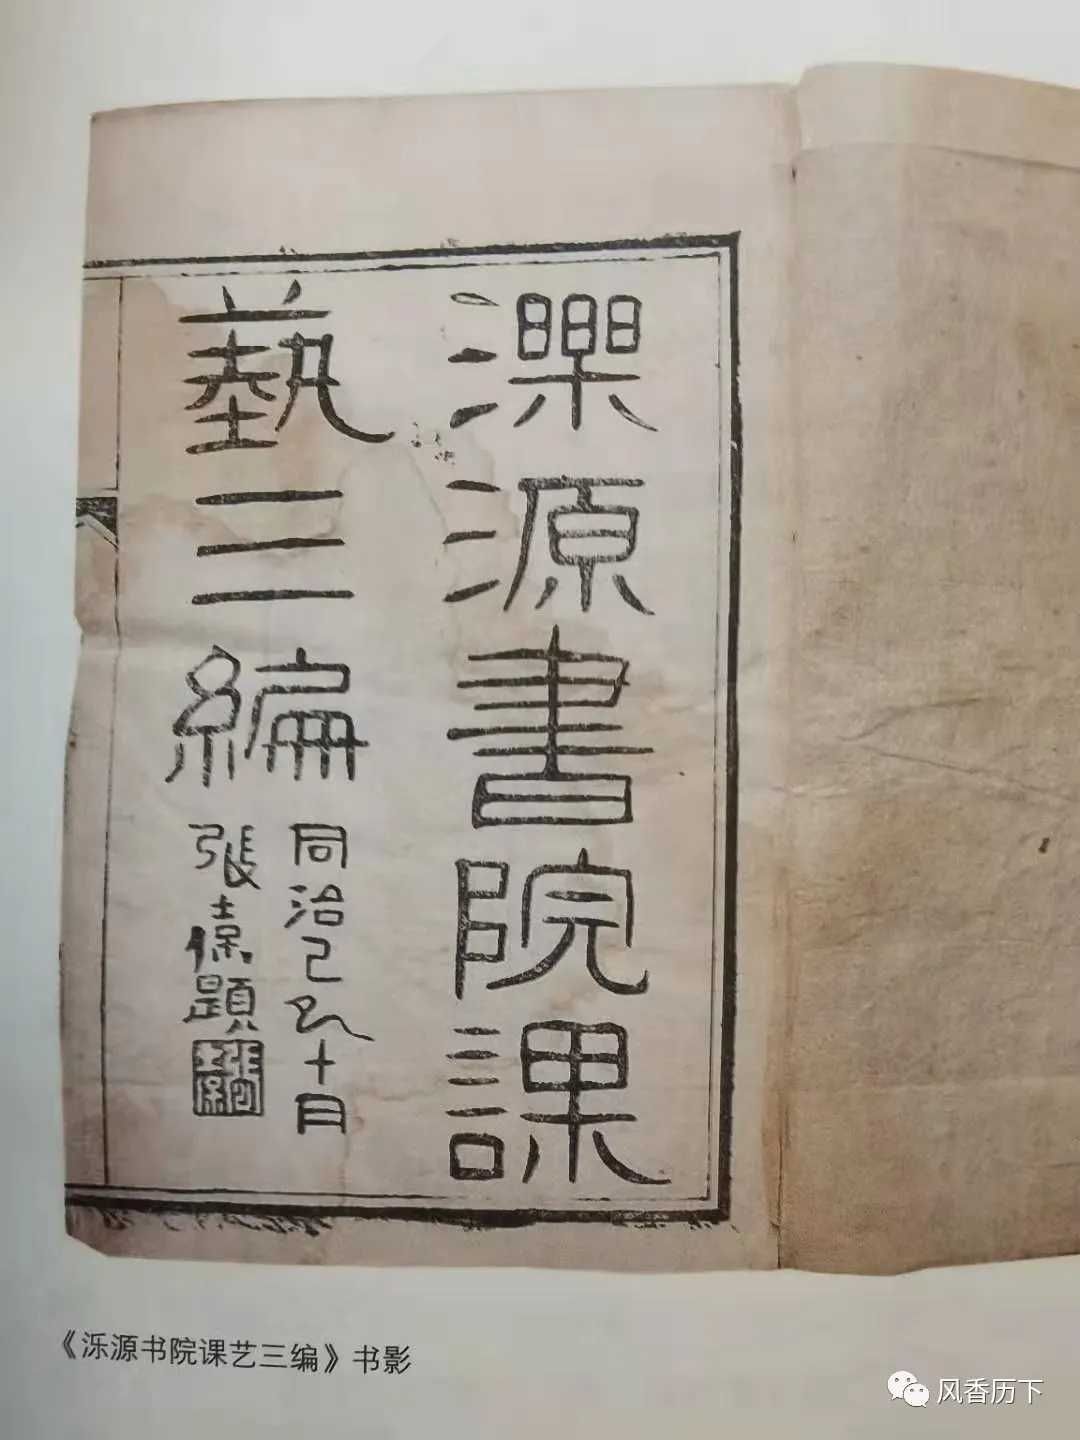 濼源書院課
藝三編
同治己巳十月
張士保題
《泺源书院课艺三编》书影
风香历下